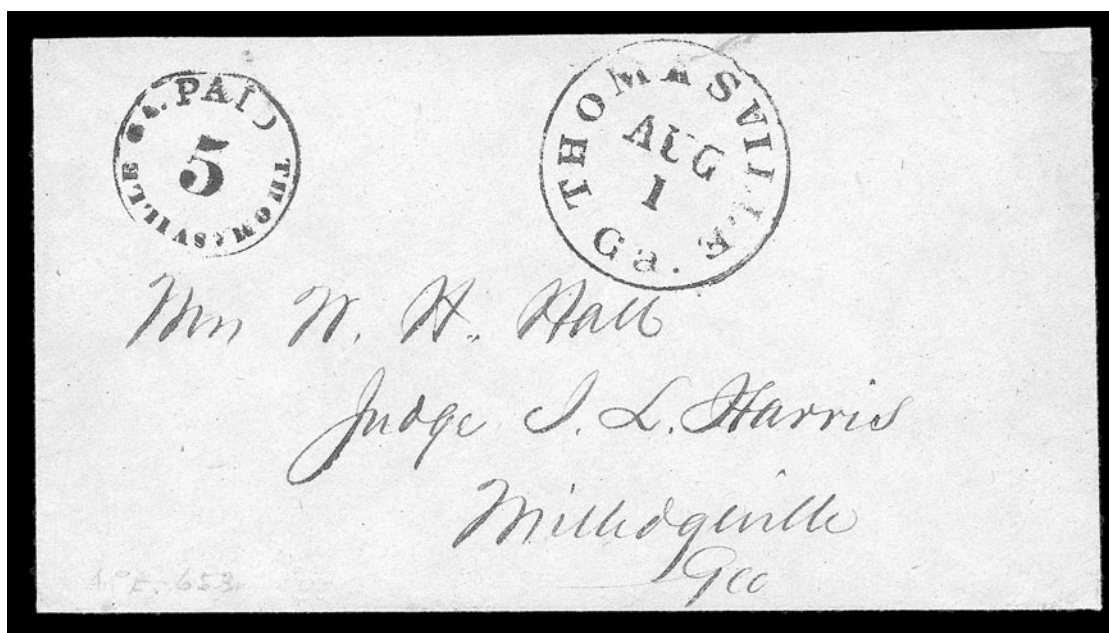 PAID
5
THOMASVILLE GA.
THOMASVILLE
AUG
1
Ga.
Mrs W. H. Hall
Judge I. L. Harris
Milledgeville
Geo